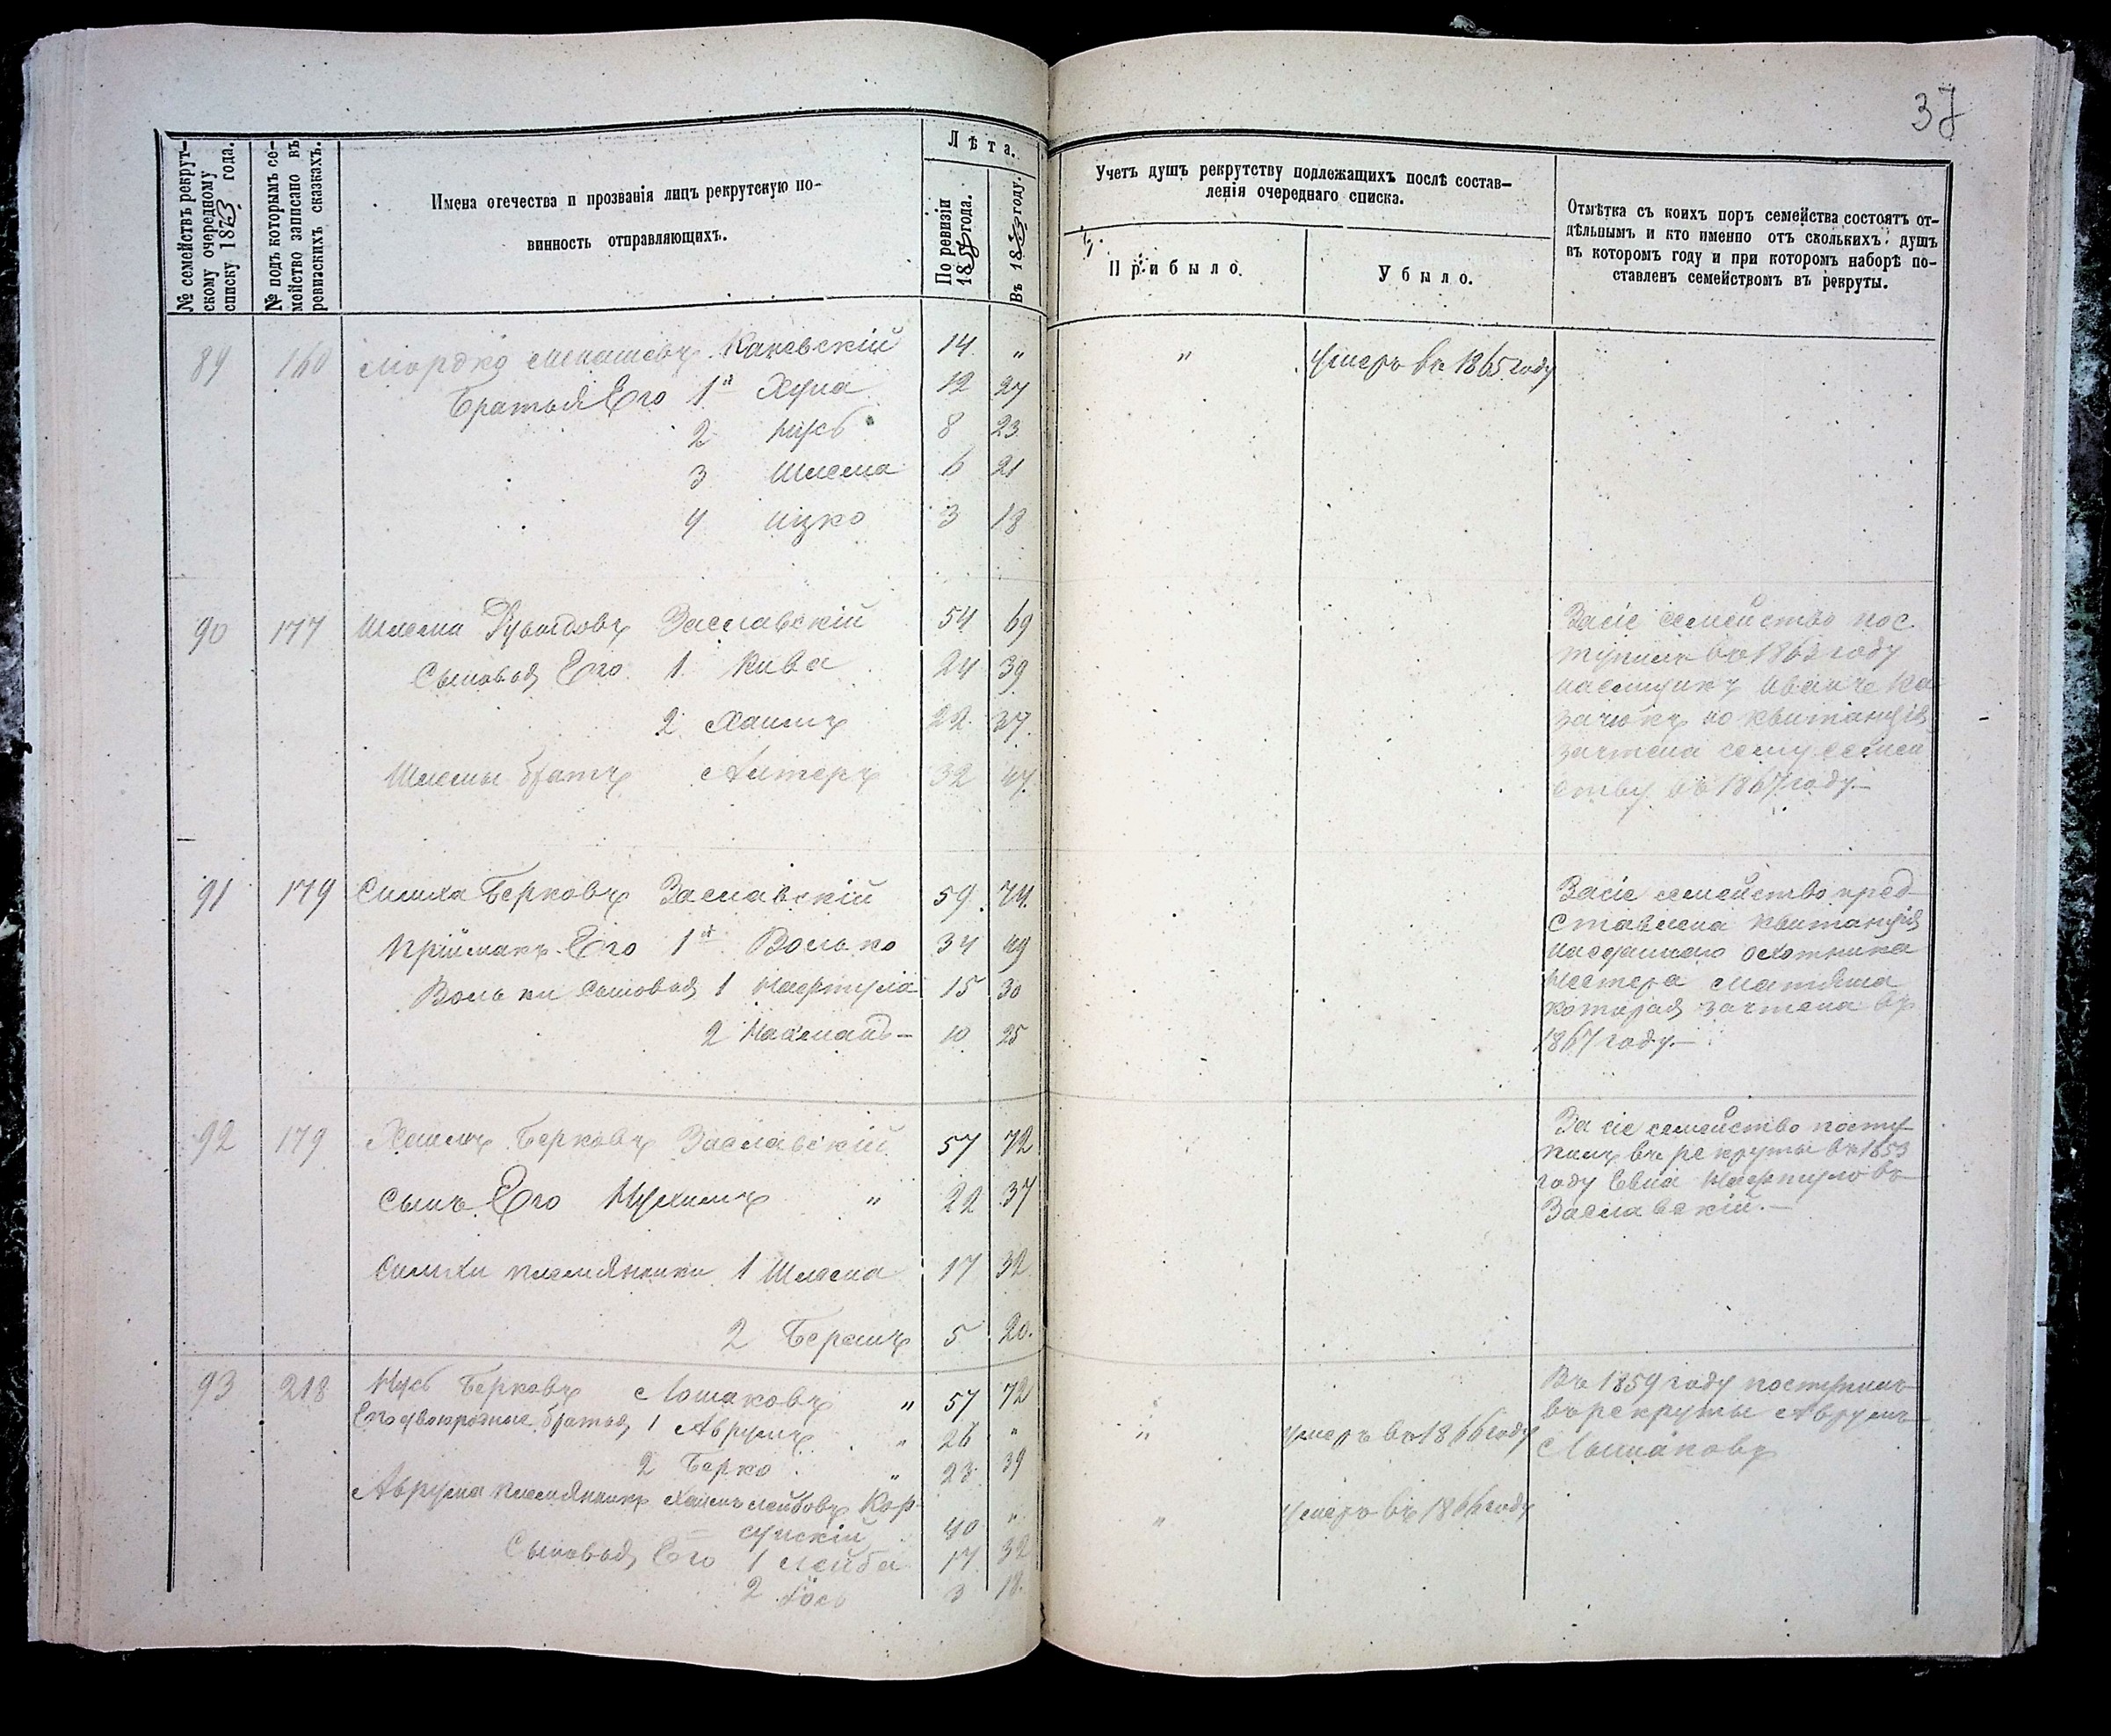 37
№ семействъ рекрут-
скому очередному
списку 1873 года.
№ подъ которымъ се-
мейство записано въ
ревизскихъ сказкахъ.
Имена отечества и прозванія лицъ рекрутскую по-
винность отправляющихъ.
Лѣта.
По ревизіи
1858 года.
Въ 1873 году.
Учетъ душъ рекрутству подлежащихъ послѣ состав-
ленія очереднаго списка.
Прибыло.
Убыло.
Отмѣтка съ коихъ поръ семейства состоятъ от-
дѣльнымъ и кто именно отъ сколькихъ душъ
въ которомъ году и при которомъ наборѣ по-
ставленъ семействомъ въ рекруты.
89 160 Мордко Менашевъ Каневскій 14 " " Умеръ въ 1865 году
Братья Его 1й Хуна 12 27
2 Нусь 8 23
3 Шлема 6 21
4 Ицко 3 18
90 177 Шлема Заславскій 54 69
Сыновья Его 1 Кива 24 39
2 Хаимъ 22 37
Шлемы братъ Алтеръ 32 47
За сіе семейство пос
тупилъ въ 1863 году
наемщикъ Иванъ Ка
зачокъ по квитанціи
зачтена сему семей
ству въ 1867 году.—
91 179 Симха Берковъ Заславскій 59 74
Пріймакъ Его 1й Волько 34 49
Вольки сыновья 1 Нафтула 15 30
2 Нахманъ— 10 25
За сіе семейство пред
ставлена квитанція
охотника
Нестера
которая зачтена въ
1867 году.—
92 179 Хаимъ Берковъ Заславскій 57 72
Сынъ Его Нухимъ " 22 37
Симхи племянники 1 Шлема 17 32
2 Беремъ 5 20.
За сіе семейство посту
пилъ въ рекруты въ 1853
году Евна Нафтуловъ
Заславскій.—
93 218 Нусь Берковъ Лошаковъ " 57 72
Его двоюродные братья 1 Аврумъ " 26 " " Умеръ въ 1866 году
2 Берко " 23 39
Аврума племянникъ Хаимъ Лейбовъ Кор-
сунскій 40 " " Умеръ въ 1866 году
Сыновья Его 1 Лейба 17 32
2 Іось 3 18.
Въ 1859 году поступилъ
въ рекруты Аврумъ
Лошаковъ